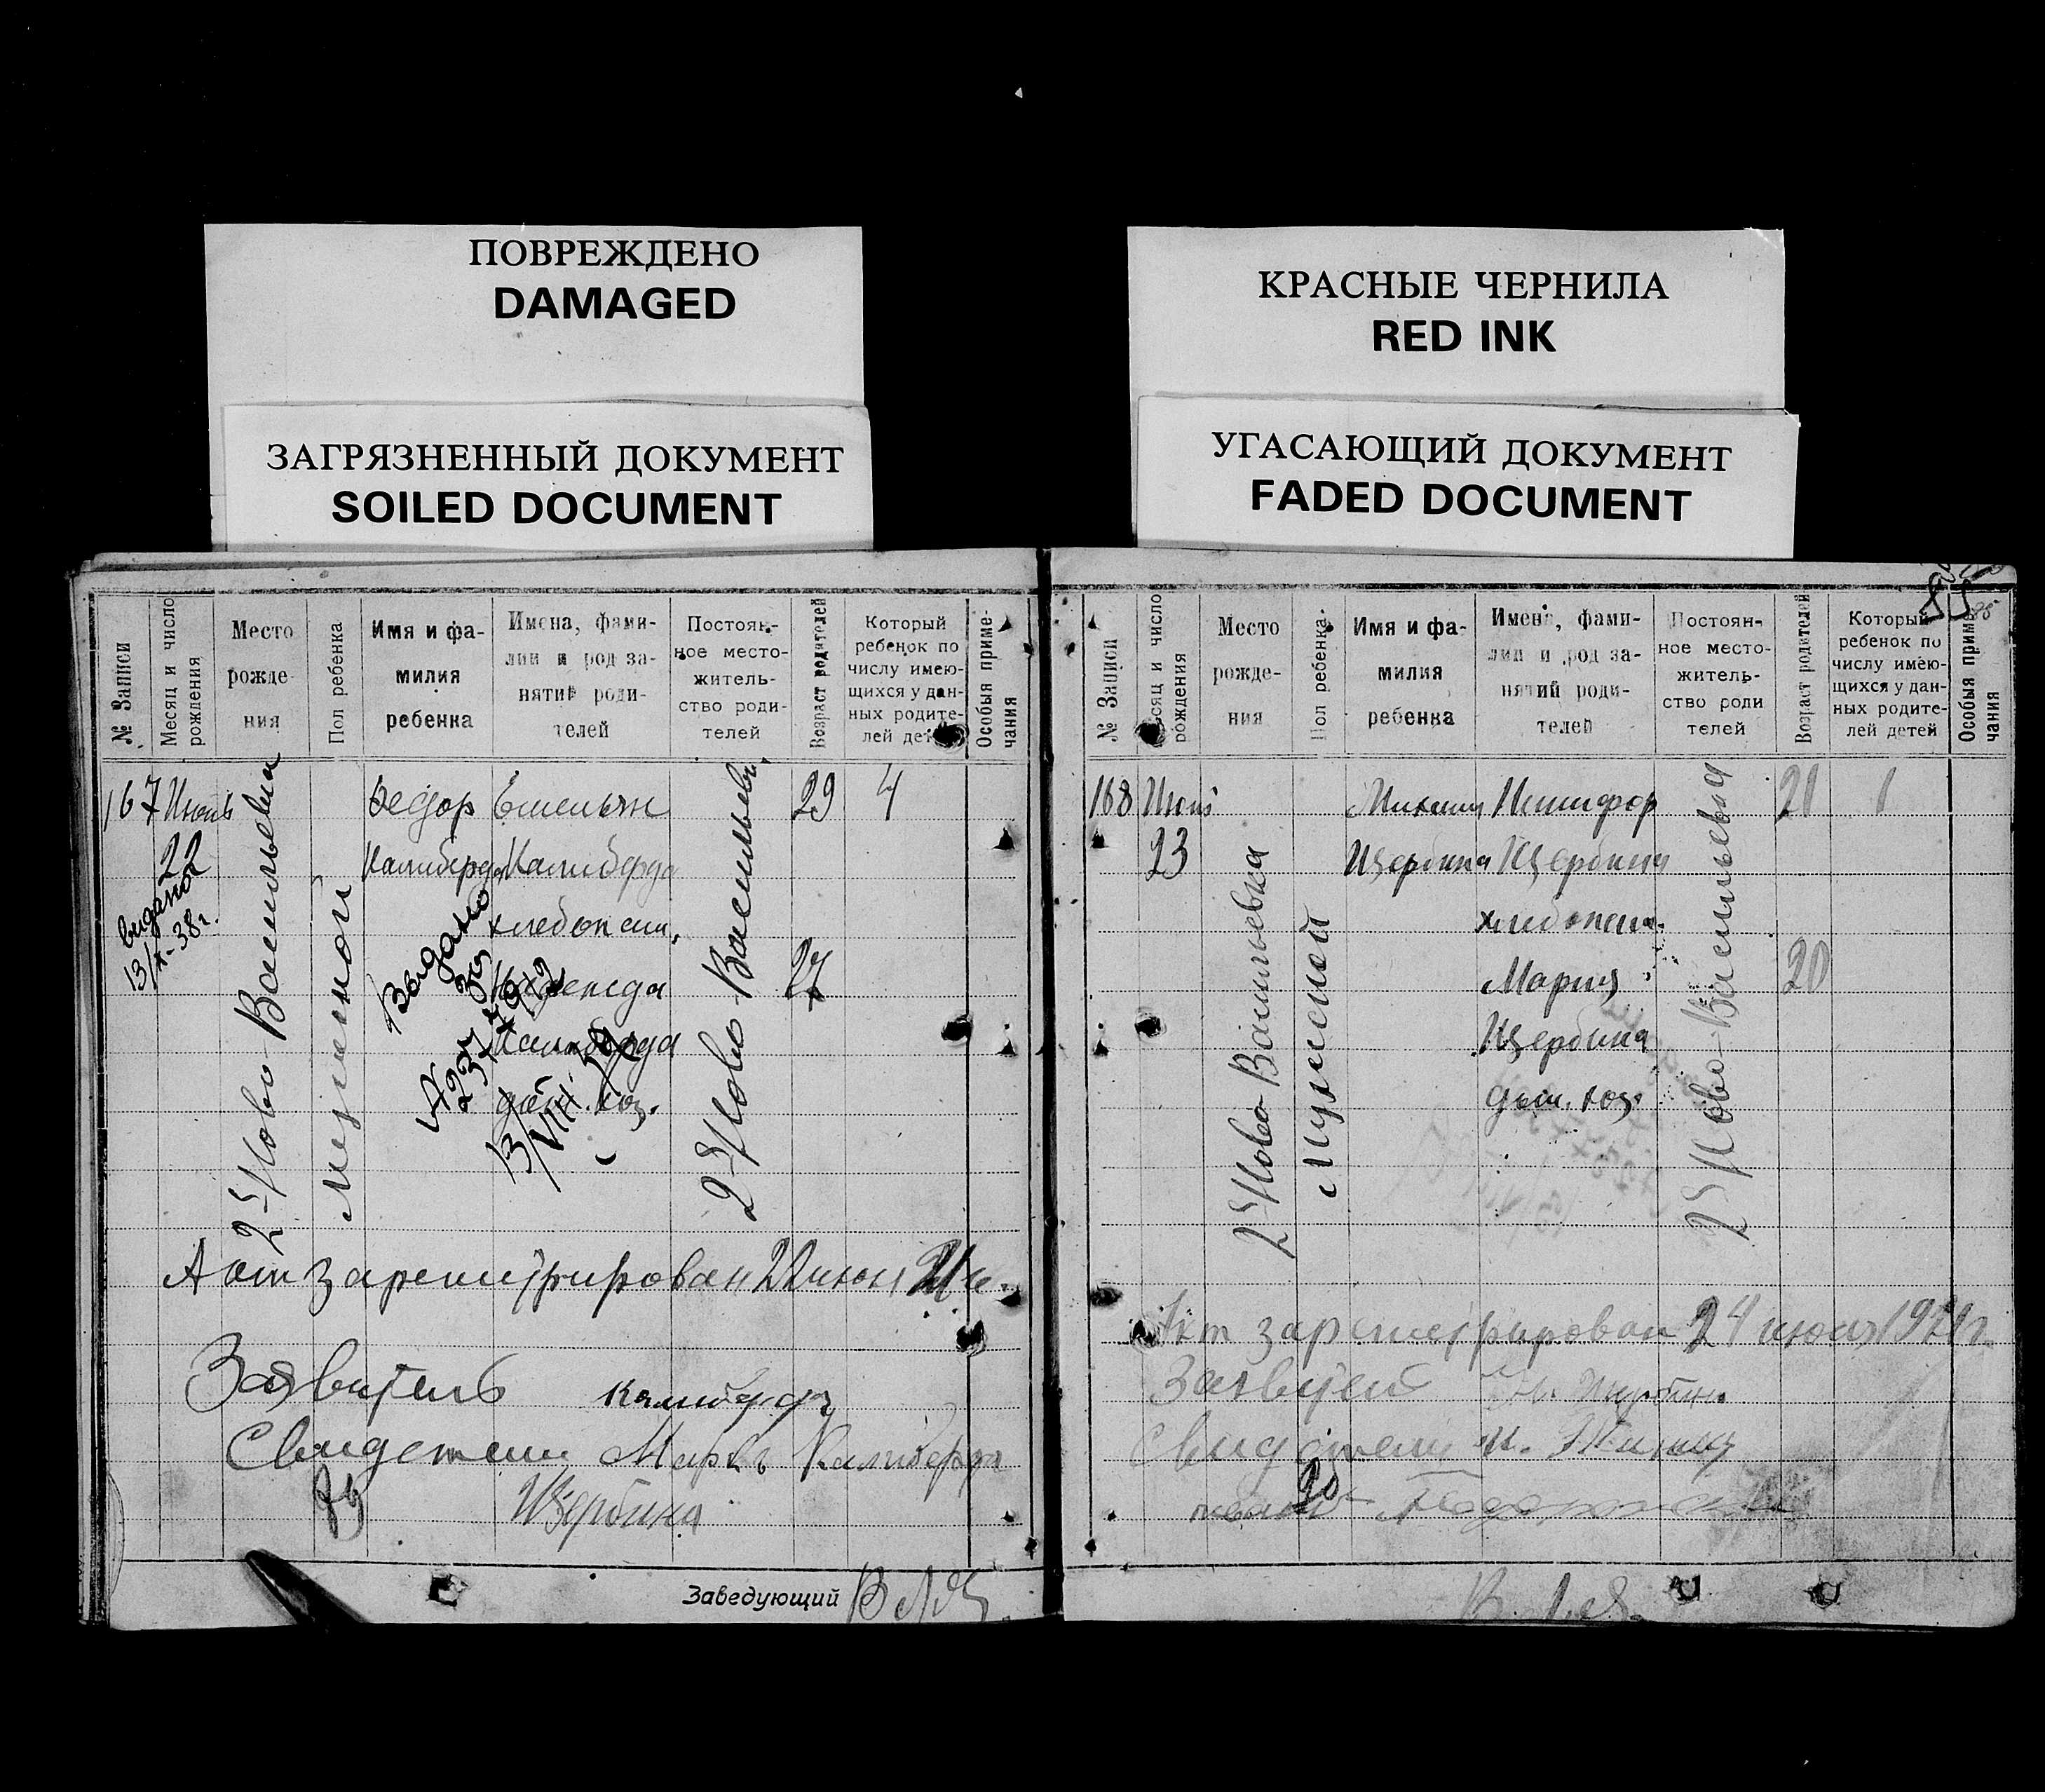 ПОВРЕЖДЕНО
DAMAGED
ЗАГРЯЗНЕННЫЙ ДОКУМЕНТ
SOILED DOCUMENT
КРАСНЫЕ ЧЕРНИЛА
RED INK
УГАСАЮЩИЙ ДОКУМЕНТ
FADED DOCUMENT
№ Записи
Месяц и число
рождения
Место
рожде-
ния
Пол ребенка
Имя и фа-
милия
ребенка
Имена, фами-
лии и род за-
нятий роди-
телей
Постоян-
ное место-
житель-
ство роди-
телей
Возраст родителей
Который
ребенок по
числу имею-
щихся у дан-
ных родите-
лей детей
Особыя приме-
чания
167 Июнь
22
выдано
13/X-38г.
2е Ново-Васильевка
Мужской
Федор
Калиберда
Выдано
Емельян
Калиберда
хлебопаш.
Калиберда
дом. хоз.
2е Ново-Васильевка
29
27
4
Акт зарегистрирован 22 июня 21 г.
Заявитель Калиберда
Свидетели Марк Калиберда
Щербина
Заведующий
85
№ Записи
Месяц и число
рождения
Место
рожде-
ния
Пол ребенка
Имя и фа-
милия
ребенка
Имена, фами-
лии и род за-
нятий роди-
телей
Постоян-
ное место-
житель-
ство роди
телей
Возраст родителей
Который
ребенок по
числу имею-
щихся у дан-
ных родите-
лей детей
Особыя приме
чания
168 Июнь
23
2е Ново-Васильевка
Мужской
Михаил
Щербина
Никифор
Щербина
хлебопаш.
Мария
Щербина
дом. хоз.
2е Ново-Васильевка
21
20
1
Акт зарегистрирован 24 июня 1921 г.
Заявител Щербина
Свидетели
90